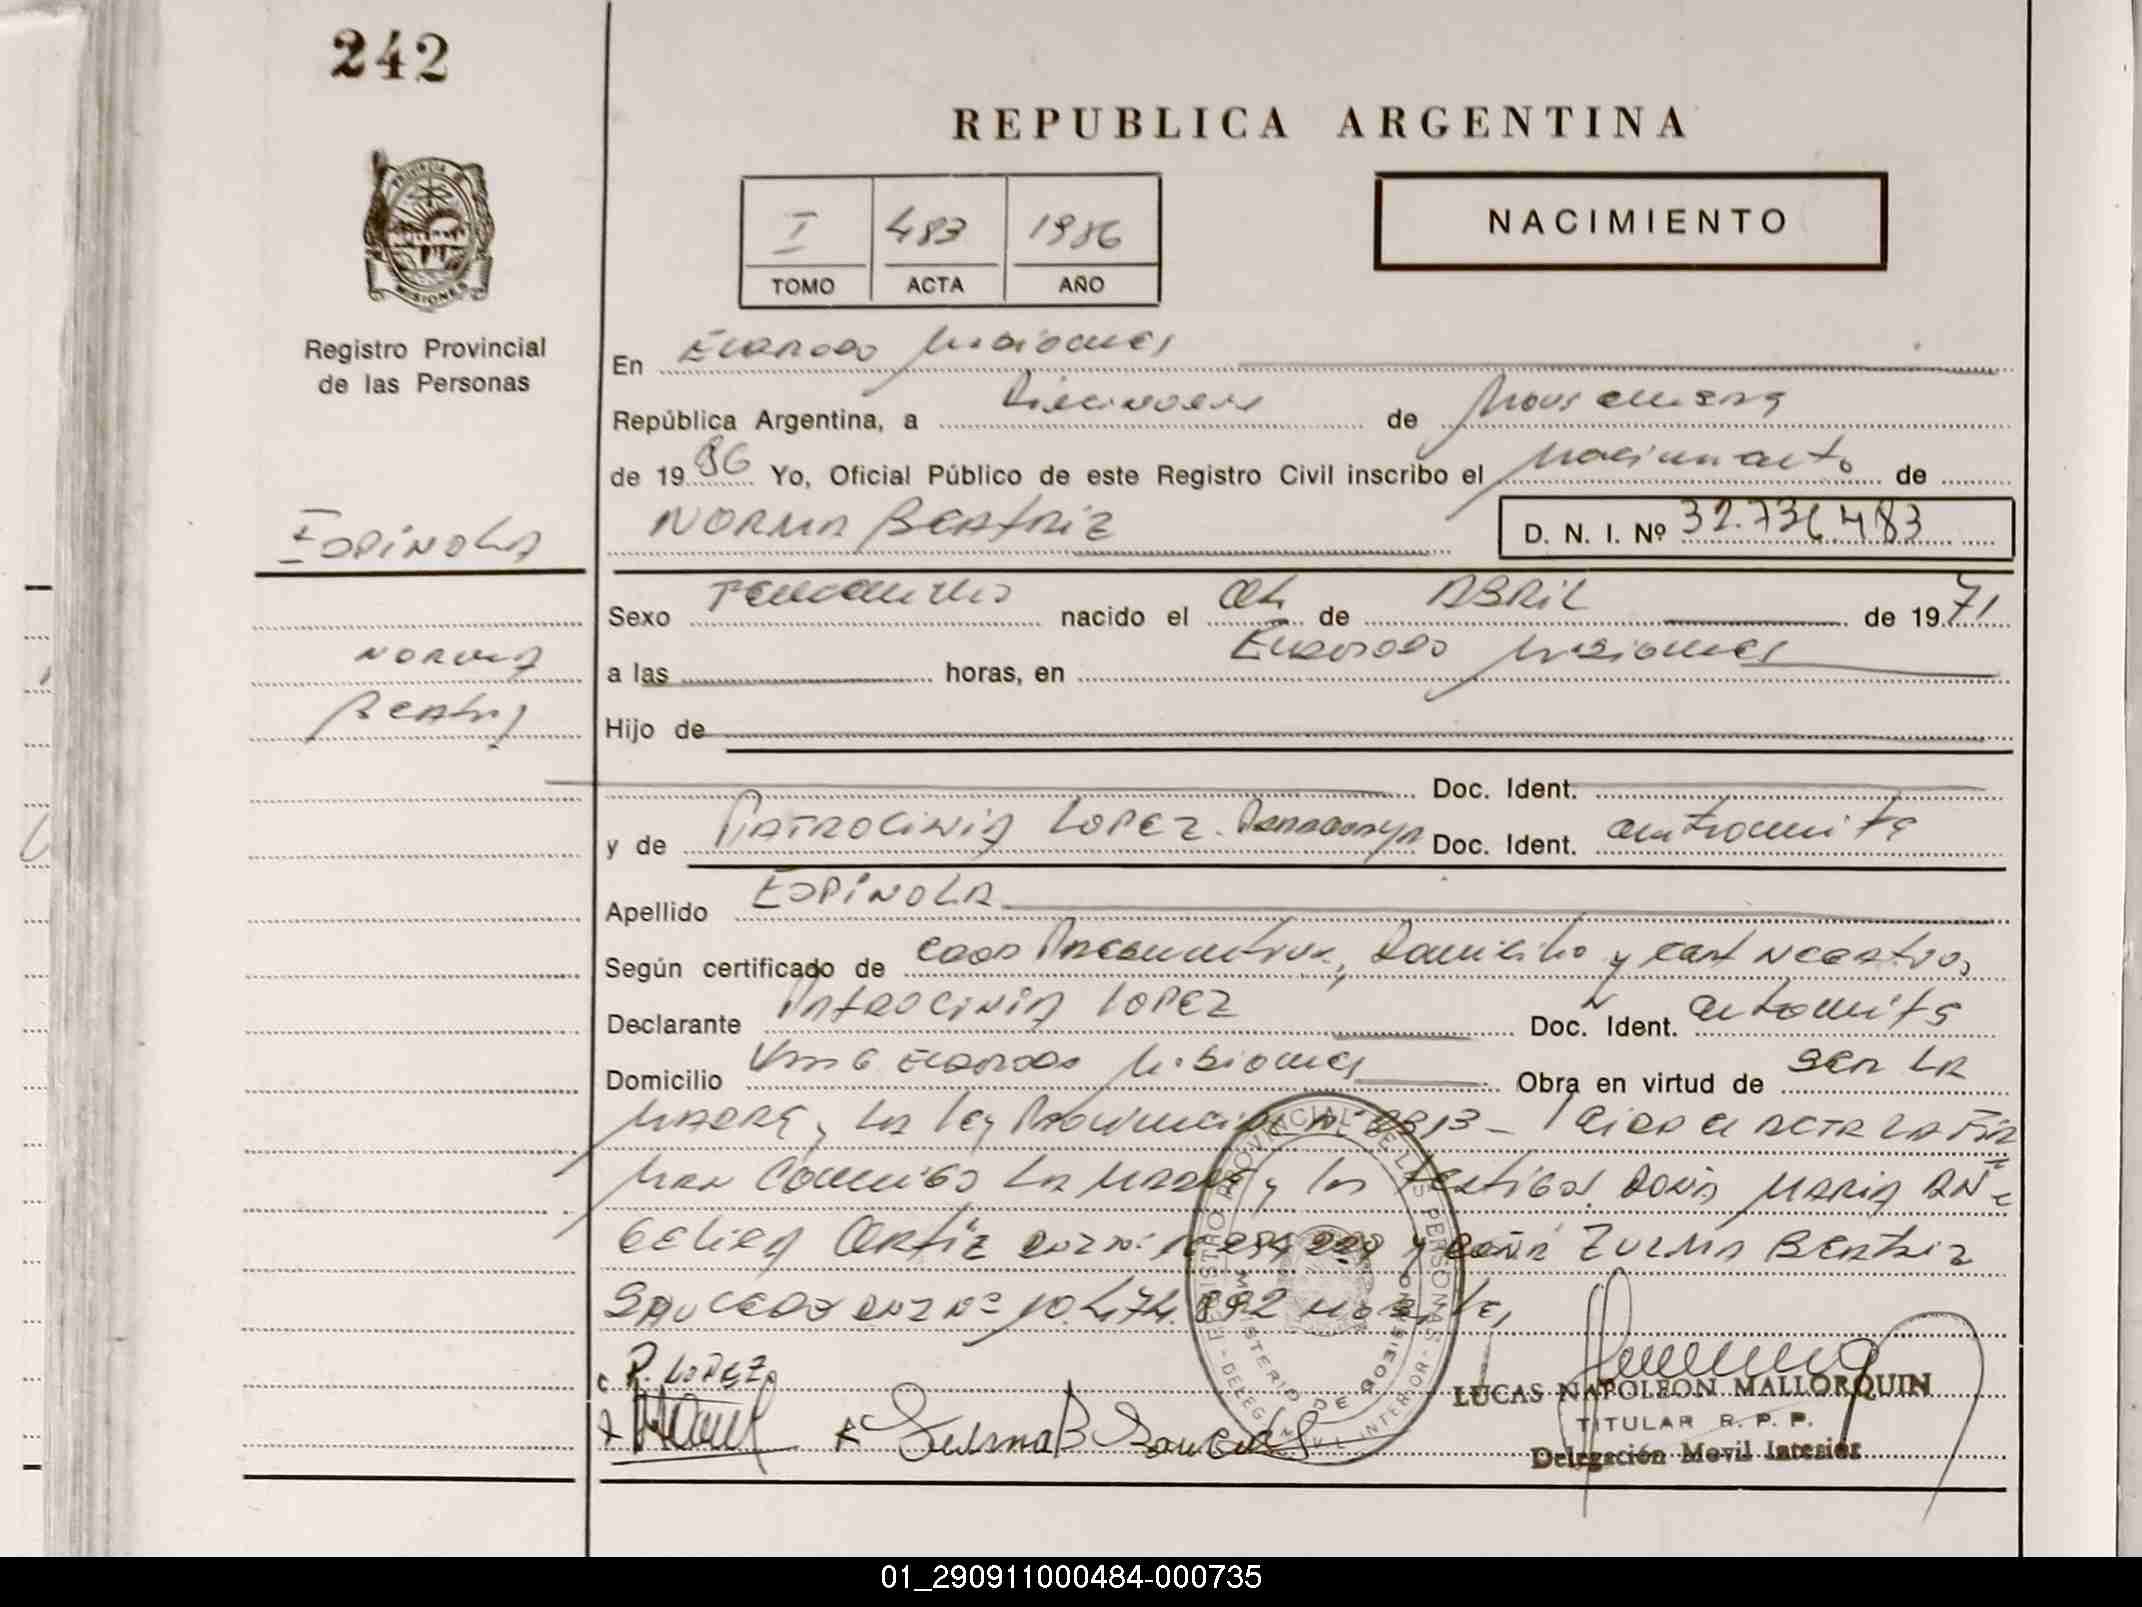 242
REPUBLICA ARGENTINA
I 483 1986
TOMO ACTA AÑO
NACIMIENTO
PROVINCIA DE
MISIONES
Registro Provincial
de las Personas
En Eldorado Misiones
República Argentina, a Diecinueve de Noviembre
de 1986 Yo, Oficial Público de este Registro Civil inscribo el Nacimiento de
NORMA BEATRIZ
D. N. I. Nº 32.736.483
ESPINOLA
NORMA
Beatriz
Sexo Femenino nacido el 04 de ABRIL de 1971
a las horas, en Eldorado Misiones
Hijo de
Doc. Ident.
y de PATROCINIA LOPEZ. Paraguaya Doc. Ident.
Apellido ESPINOLA
Según certificado de Edad Presuntiva, Domicilio y Cert Negativos
Declarante PATROCINIA LOPEZ Doc. Ident.
Domicilio Km 6 Eldorado Misiones Obra en virtud de SER LA
MADRE y LA Ley Provincial Nº Leida el ACTA LA FIR
MAN Conmigo LA MADRE y los Testigos DOÑA MARIA AN
GELICA ORTIZ DNI Nº y DOÑA ZULMA BEATRIZ
SAUCEDO DNI Nº 10.474.892
P. LOPEZ
Zulma B Saucedo
REGISTRO PROVINCIAL DE LAS PERSONAS
MINISTERIO DE GOBIERNO
LUCAS NAPOLEON MALLORQUIN
TITULAR R. P. P.
Delegación Movil Interior
01_290911000484-000735